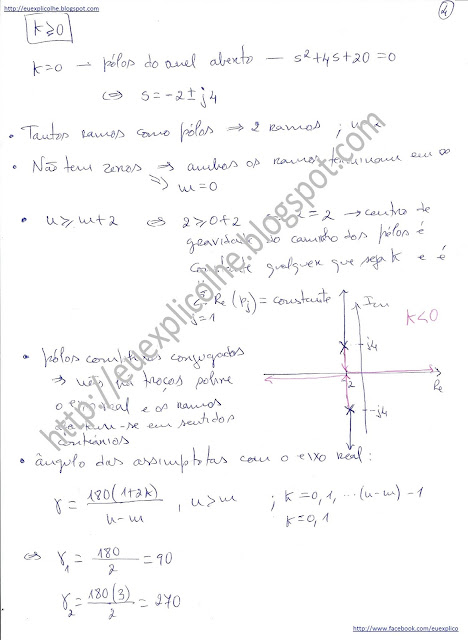 http://euexplicolhe.blogspot.com
4
K≥0
K=0 → pólos do anel aberto — s²+4s+20=0
⇔ s=-2±j4
• Tantos ramos como pólos ⇒ 2 ramos ; n=2
• Não tem zeros ⇒ ambos os ramos terminam em ∞
⇒ m=0
• n≥m+2 ⇔ 2≥0+2 2=2 → centro de
gravidade do caminho dos pólos é
constante qualquer que seja K e é
Σ Re(pj) = constante
j=1
Im
K<0
j4
2
Re
-j4
• pólos complexos conjugados
⇒ não há troços sobre
o eixo real e os ramos
em sentidos
contrários
• ângulo das assimptotas com o eixo real:
γ = 180(1+2k) / n-m , n>m ; k=0,1, ...(n-m)-1
k=0,1
⇔ γ₁ = 180 / 2 = 90
γ₂ = 180(3) / 2 = 270
http://euexplicolhe.blogspot.com
http://www.facebook.com/euexplico